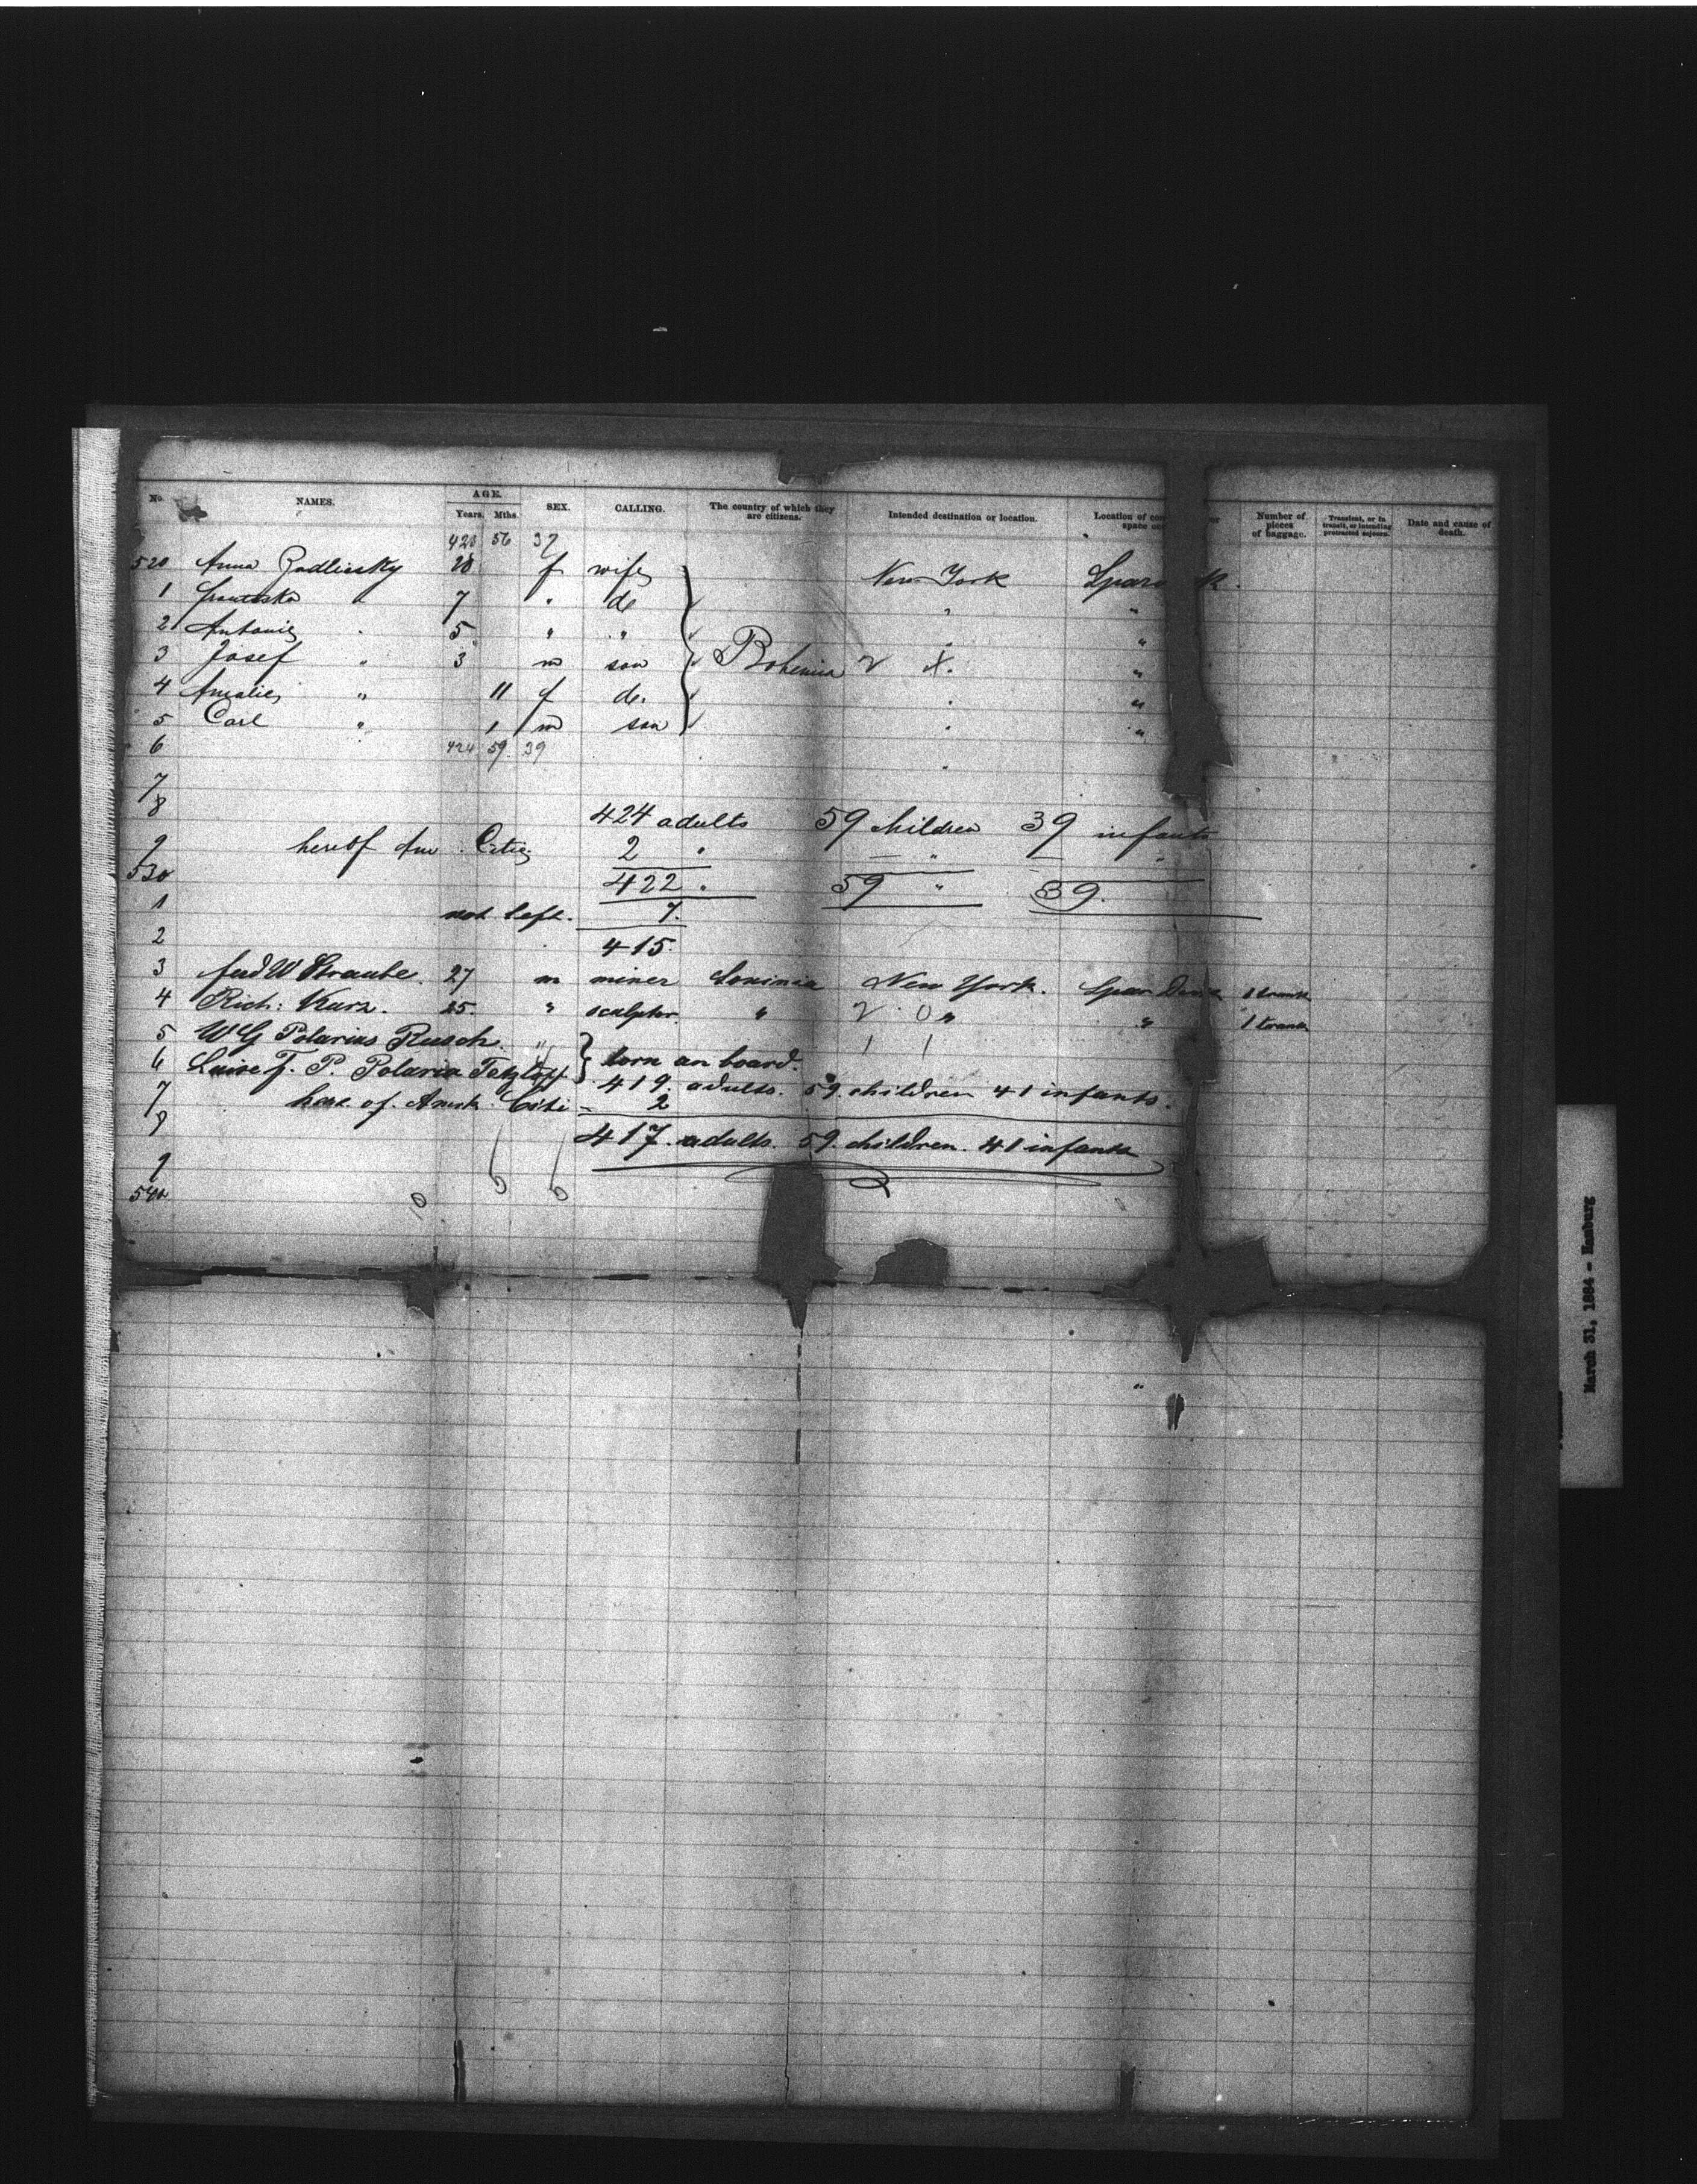 No. NAMES. AGE. Years. Mths. SEX. CALLING. The country of which they are citizens. Intended destination or location. Location of com space occ or Number of pieces of baggage. Transient, or in transit, or intending protracted sojourn. Date and cause of death.
420 56 37
520 Anna 28 f wife New York
1 " 7 " do " "
2 Antonie " 5 " " " "
3 Josef " 3 m son Bohemia 2 "
4 Amalie " 11 f do. " "
5 Carl " 1 m son " "
6 424 59 39 "
7
8 424 adults 59 children 39 infants
9 hereof Am. 2 " — " — "
530 422 " 59 " 39.
1 not left. 7.
2 415.
3 Ferd W Straube. 27 m miner New York. 1 trunk
4 Rich: Kurz. 25. " sculptor. " 2 0 " " 1 trunk
5 W G Polarius Rusch. " 1 1
6 Luise F. P. Polaria Tetzlaff } born an board.
7 419. adults. 59. children 41 infants.
here of. Amek. Citi - 2
8 417. adults. 59. children. 41 infants
9
540
March 31, 1884 - Hamburg